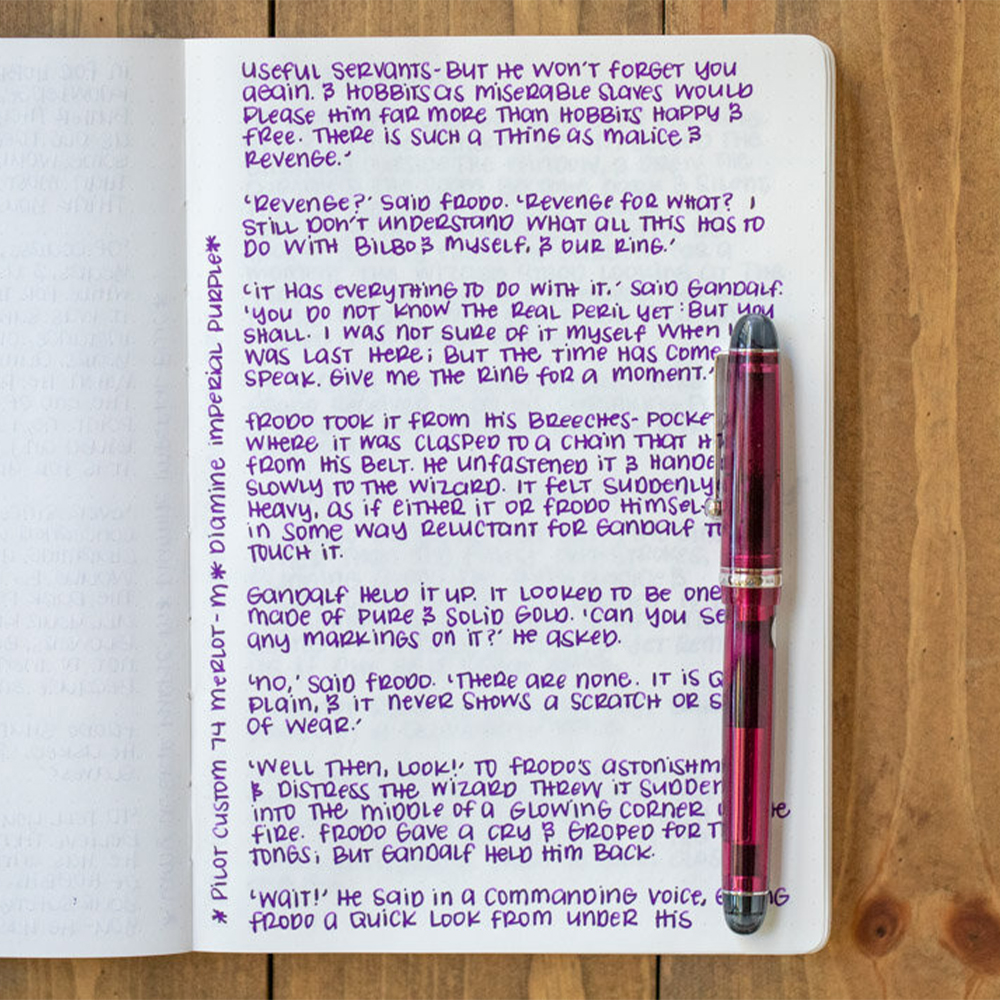 USEFUL SERVANTS - BUT HE WON'T FORGET YOU
AGAIN. & HOBBITS AS MISERABLE SLAVES WOULD
PLEASE HIM FAR MORE THAN HOBBITS HAPPY &
FREE. THERE IS SUCH A THING AS MALICE &
REVENGE.'
'REVENGE?' SAID FRODO. 'REVENGE FOR WHAT? I
STILL DON'T UNDERSTAND WHAT ALL THIS HAS TO
DO WITH BILBO & MYSELF, & OUR RING.'
'IT HAS EVERYTHING TO DO WITH IT.' SAID GANDALF.
'YOU DO NOT KNOW THE REAL PERIL YET: BUT YOU
SHALL. I WAS NOT SURE OF IT MYSELF WHEN I
WAS LAST HERE; BUT THE TIME HAS COME
SPEAK. GIVE ME THE RING FOR A MOMENT.'
FRODO TOOK IT FROM HIS BREECHES-POCKE
WHERE IT WAS CLASPED TO A CHAIN THAT H
FROM HIS BELT. HE UNFASTENED IT & HANDE
SLOWLY TO THE WIZARD. IT FELT SUDDENLY
HEAVY, AS IF EITHER IT OR FRODO HIMSEL
IN SOME WAY RELUCTANT FOR GANDALF T
TOUCH IT.
GANDALF HELD IT UP. IT LOOKED TO BE ONE
MADE OF PURE & SOLID GOLD. 'CAN YOU SE
ANY MARKINGS ON IT?' HE ASKED.
'NO,' SAID FRODO. 'THERE ARE NONE. IT IS Q
PLAIN, & IT NEVER SHOWS A SCRATCH OR S
OF WEAR.'
'WELL THEN, LOOK!' TO FRODO'S ASTONISHM
& DISTRESS THE WIZARD THREW IT SUDDEN
INTO THE MIDDLE OF A GLOWING CORNER
FIRE. FRODO GAVE A CRY & GROPED FOR T
TONGS; BUT GANDALF HELD HIM BACK.
'WAIT!' HE SAID IN A COMMANDING VOICE,
FRODO A QUICK LOOK FROM UNDER HIS
* PILOT CUSTOM 74 MERLOT - M * DIAMINE IMPERIAL PURPLE *